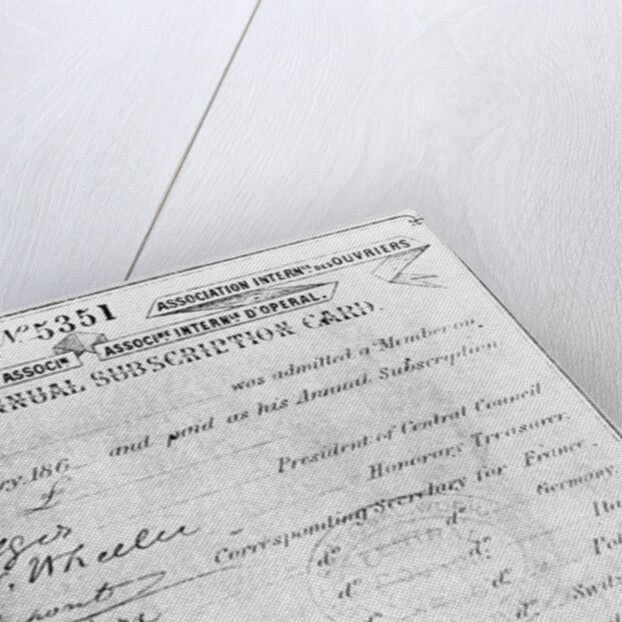 No 5351
ASSOCIATION INTERNle DES OUVRIERS
ASSOCIn
ASSOCIne INTERNle D'OPERAI.
NNUAL SUBSCRIPTION CARD.
was admitted a Member on
ry 186 and paid as his Annual Subscription
£
President of Central Council
Honorary Treasurer.
Wheeler Corresponding Secretary for France.
do do Germany.
do do
do do
do Switz